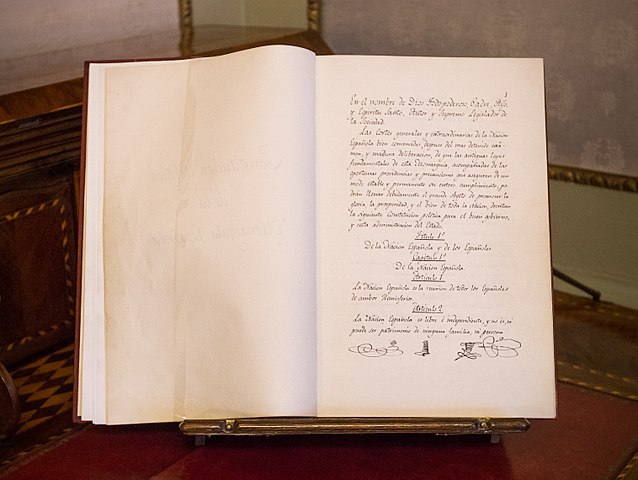 1
En el nombre de Dios Todopoderoso, Padre, Hijo,
y Espiritu Santo, Autor y Supremo Legislador de
la Sociedad.
Las Cortes generales y extraordinarias de la Nacion
Española bien convencidas, despues del mas detenido exá-
men, y madura deliberacion, de que las antiguas leyes
fundamentales de esta Monarquia, acompañadas de las
oportunas providencias y precauciones que aseguren de un
modo estable y permanente su entero cumplimiento, po-
dran llenar debidamente el grande objeto de promover la
gloria, la prosperidad, y el bien de toda la Nacion, decretan
la siguiente Constitucion politica para el buen gobierno,
y recta administracion del Estado.
Titulo 1º
De la Nacion Española y de los Españoles.
Capitulo 1º
De la Nacion Española.
Articulo 1
La Nacion Española es la reunion de todos los Españoles
de ambos Hemisferios.
Articulo 2
La Nacion Española es libre é independiente, y no és, ni
puede ser patrimonio de ninguna familia, ni persona.